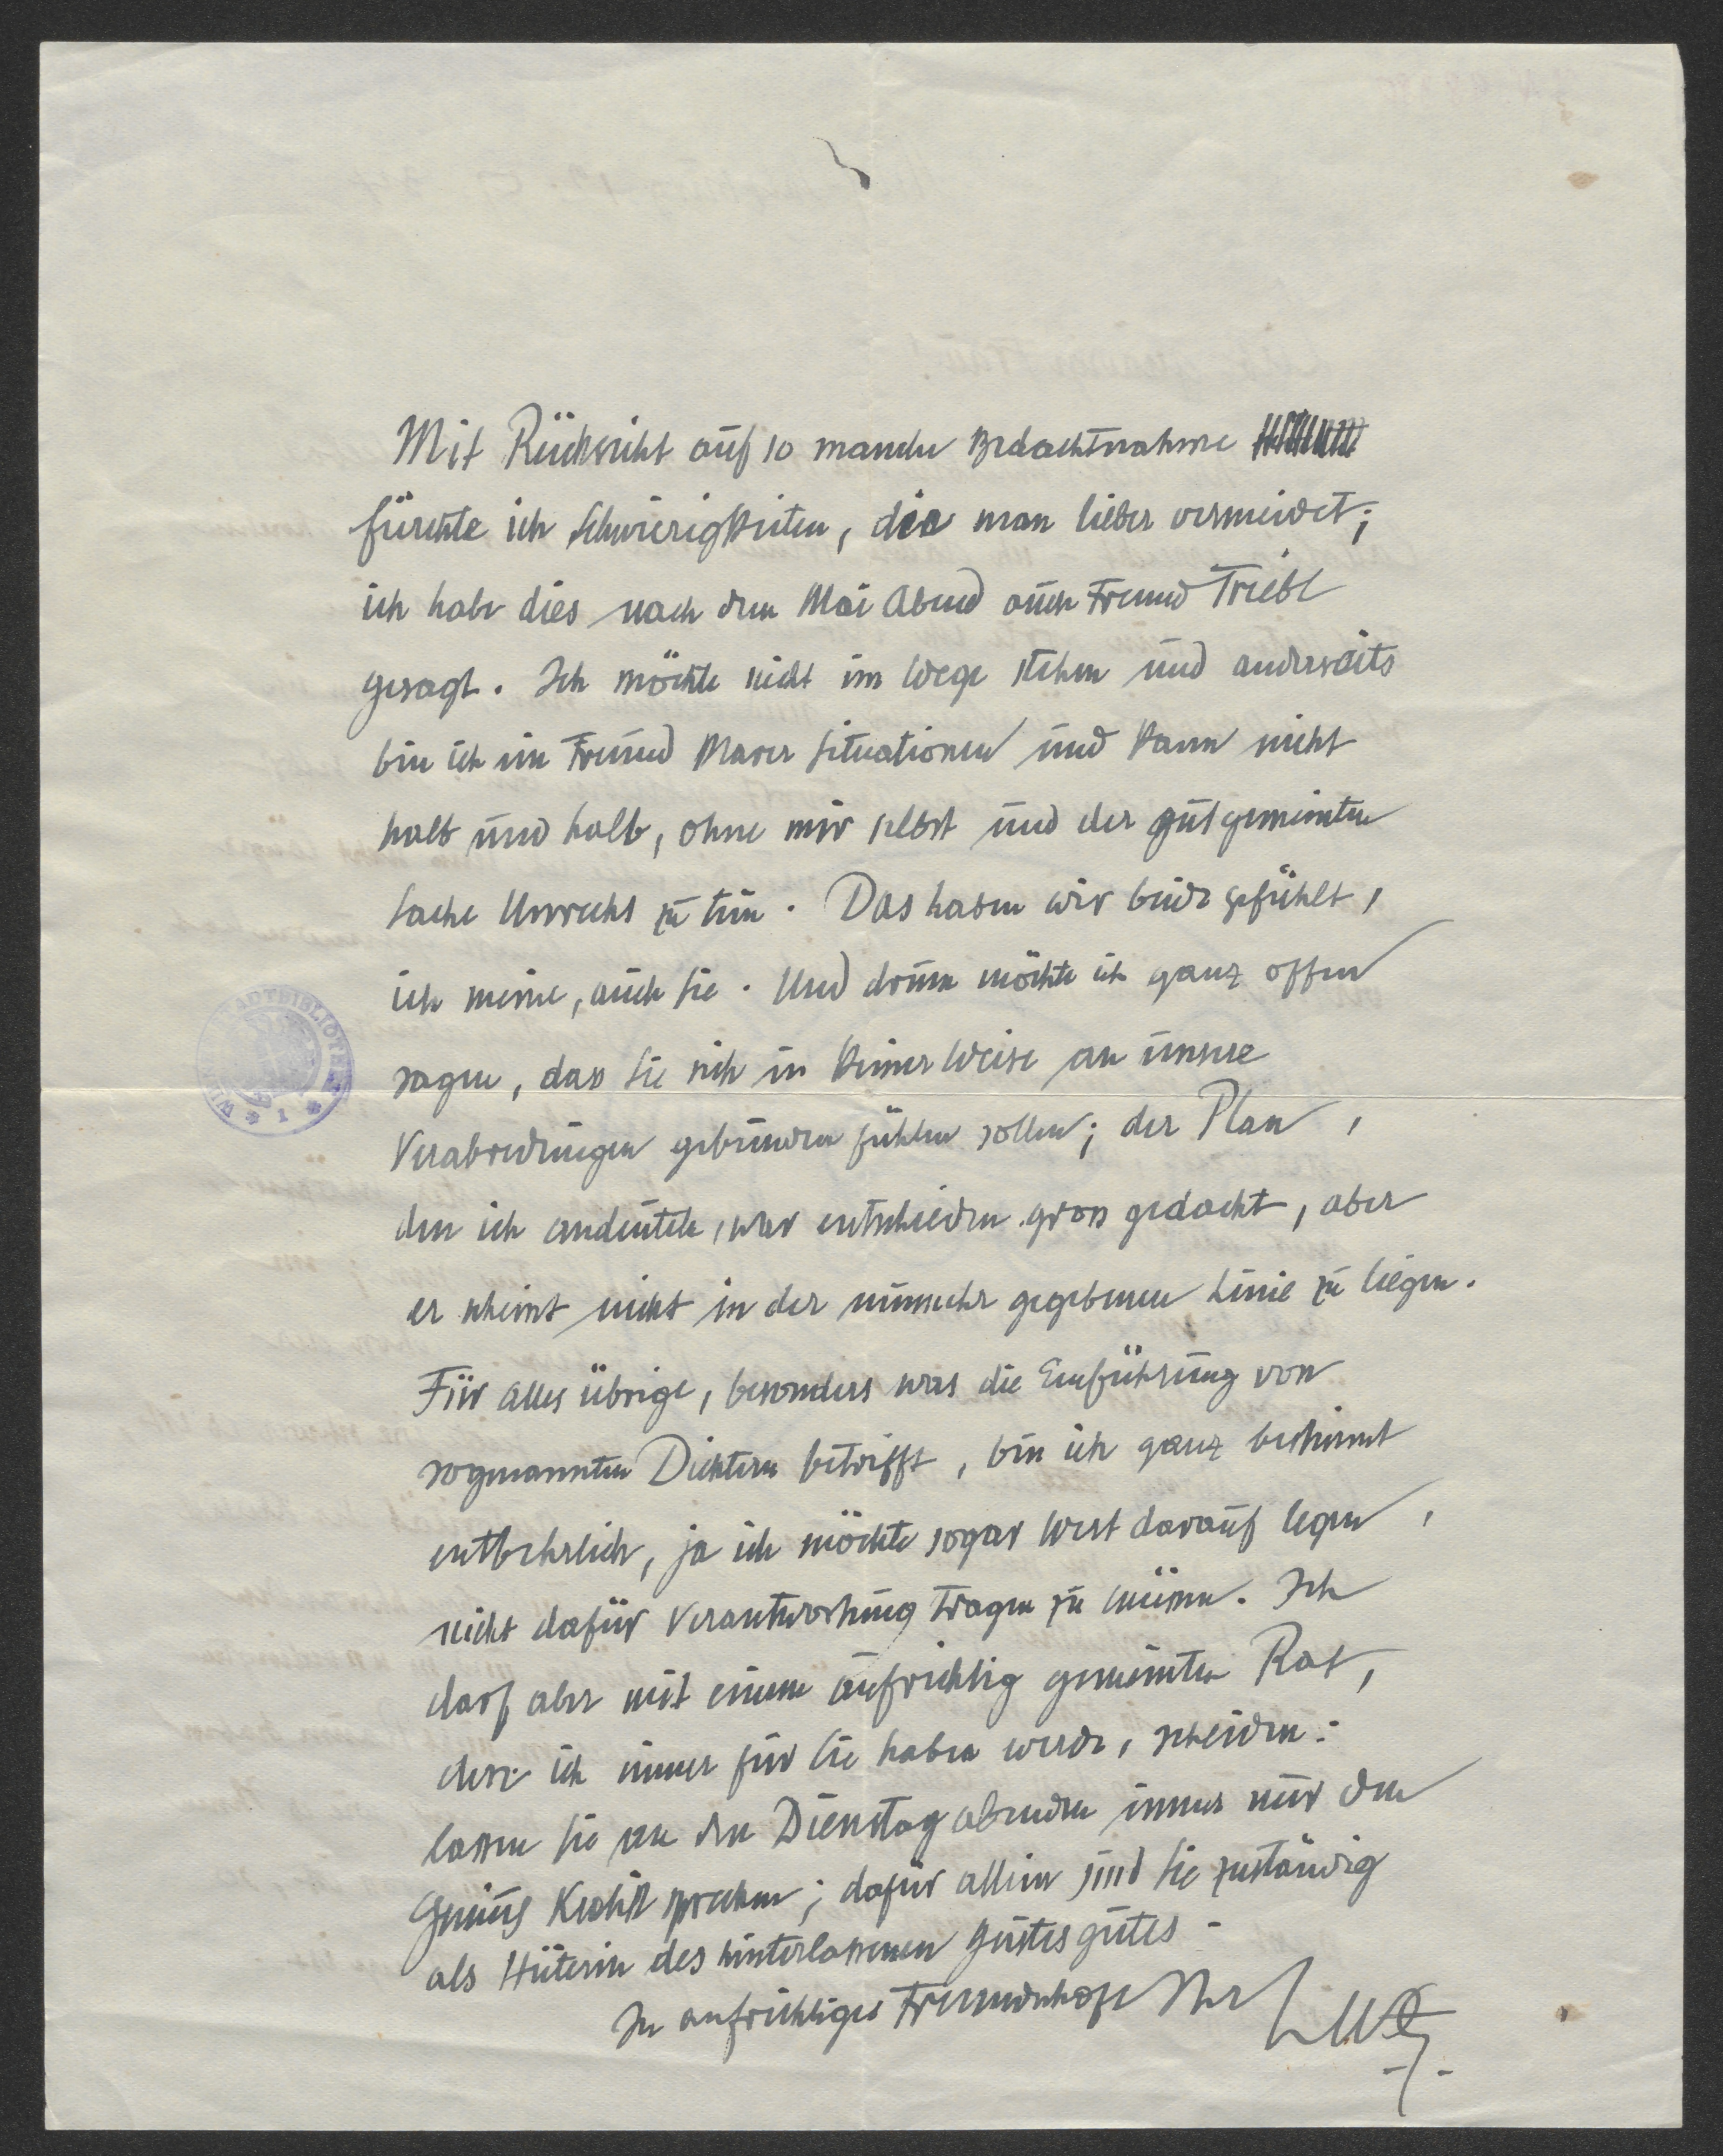 Mit Rücksicht auf so manche Bedachtnahme
fürchte ich Schwierigkeiten, die man lieber vermeidet;
ich habe dies nach dem Mai Abend auch Freund Triebl
gesagt. Ich möchte nicht im Wege stehen und anderseits
bin ich ein Freund klarer Situationen und kann nicht
halb und halb, ohne mir selbst und der gutgemeinten
Sache Unrecht zu tun. Das haben wir beide gefühlt,
ich meine, auch Sie. Und drum möchte ich ganz offen
sagen, dass Sie sich in keiner Weise an unsere
Verabredungen gebunden fühlen sollen; der Plan,
den ich andeutete, war entschieden gross gedacht, aber
er scheint nicht in der nunmehr gegebenen Linie zu liegen.
Für alles übrige, besonders was die Einführung von
sogenannten Dichtern betrifft, bin ich ganz bestimmt
entbehrlich, ja ich möchte sogar Wert darauf legen,
nicht dafür Verantwortung tragen zu müssen. Ich
darf aber mit einem aufrichtig gemeinten Rat,
den ich immer für Sie haben werde, scheiden:
lassen Sie an den Dienstag abenden immer nur den
Genius sprechen; dafür allein sind Sie zuständig
als Hüterin des hinterlassenen Geistesgutes -
In aufrichtiger Freundschaft Ihr
WIENER STADTBIBLIOTHEK